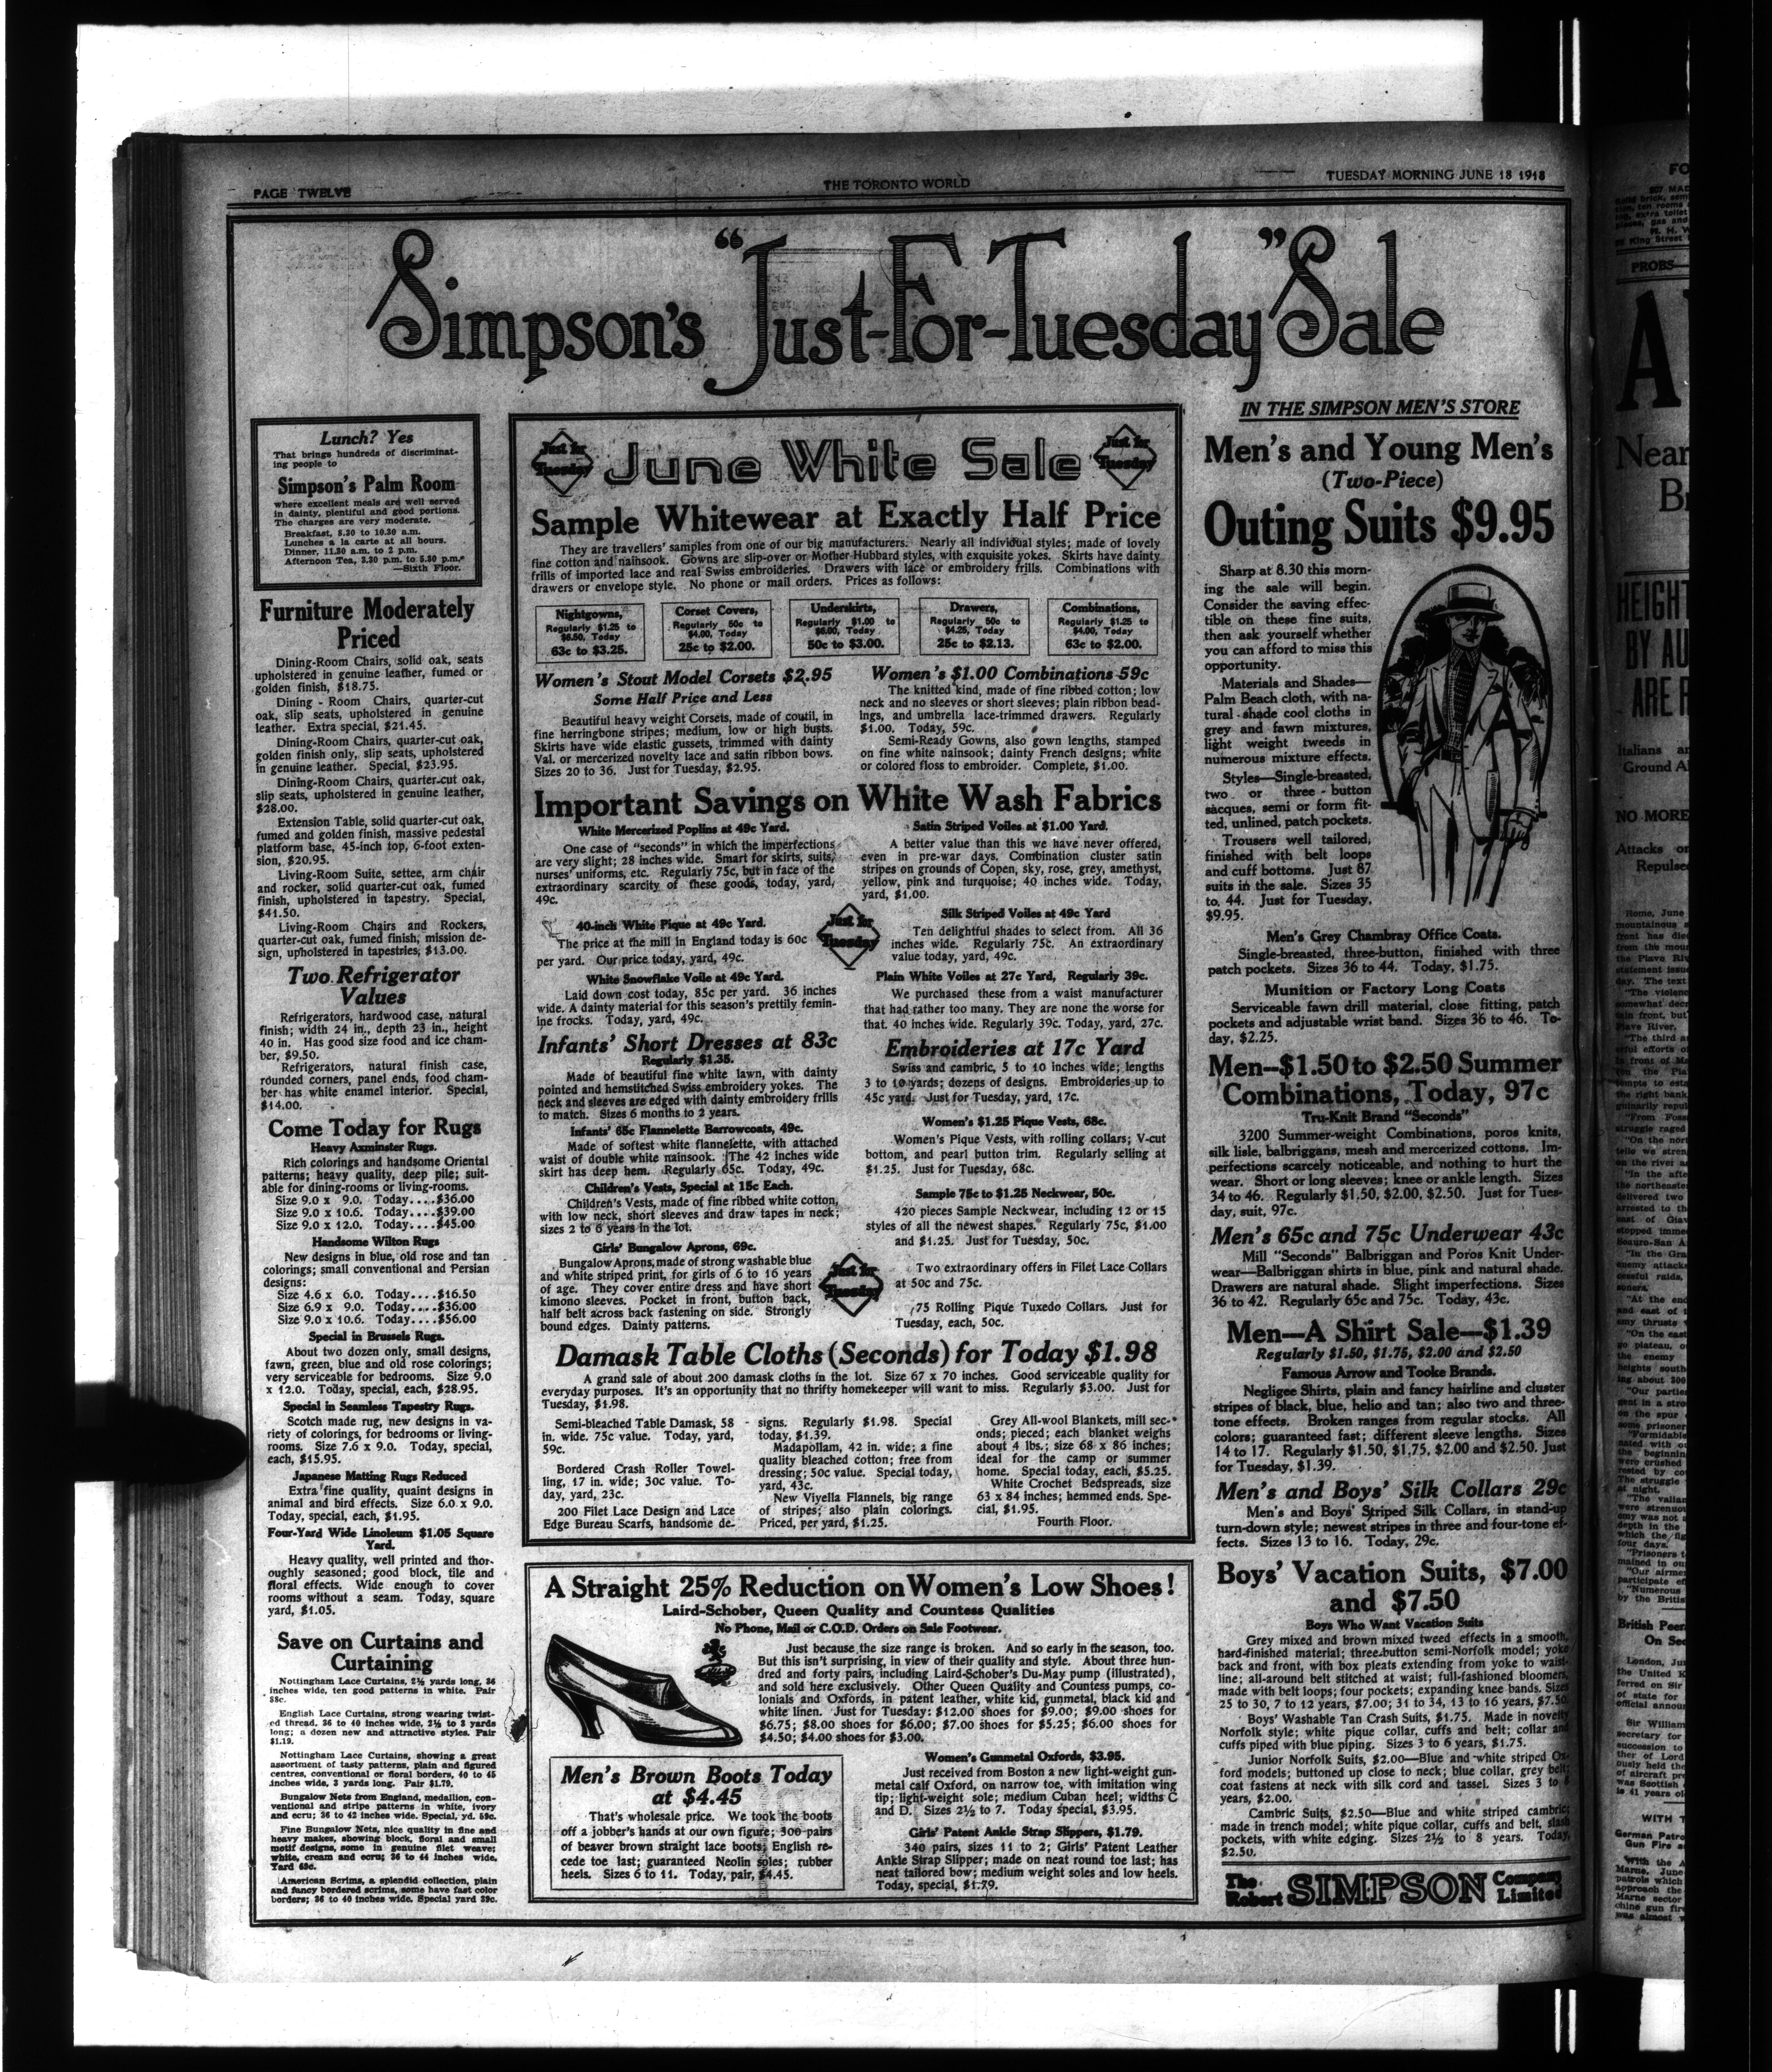 PAGE TWELVE
THE TORONTO WORLD
TUESDAY MORNING JUNE 18 1918
Simpson's "Just-For-Tuesday" Sale
Lunch? Yes
That brings hundreds of discriminat-
ing people to
Simpson's Palm Room
where excellent meals are well served
in dainty, plentiful and good portions.
The charges are very moderate.
Breakfast, 8.30 to 10.30 a.m.
Lunches a la carte at all hours.
Dinner, 11.30 a.m. to 2 p.m.
Afternoon Tea, 3.30 p.m. to 5.30 p.m.
—Sixth Floor.
Furniture Moderately
Priced
Dining-Room Chairs, solid oak, seats
upholstered in genuine leather, fumed or
golden finish, $18.75.
Dining - Room Chairs, quarter-cut
oak, slip seats, upholstered in genuine
leather. Extra special, $21.45.
Dining-Room Chairs, quarter-cut oak,
golden finish only, slip seats, upholstered
in genuine leather. Special, $23.95.
Dining-Room Chairs, quarter-cut oak,
slip seats, upholstered in genuine leather,
$28.00.
Extension Table, solid quarter-cut oak,
fumed and golden finish, massive pedestal
platform base, 45-inch top, 6-foot exten-
sion, $20.95.
Living-Room Suite, settee, arm chair
and rocker, solid quarter-cut oak, fumed
finish, upholstered in tapestry. Special,
$41.50.
Living-Room Chairs and Rockers,
quarter-cut oak, fumed finish, mission de-
sign, upholstered in tapestries, $13.00.
Two Refrigerator
Values
Refrigerators, hardwood case, natural
finish; width 24 in., depth 23 in., height
40 in. Has good size food and ice cham-
ber, $9.50.
Refrigerators, natural finish case,
rounded corners, panel ends, food cham-
ber has white enamel interior. Special,
$14.00.
Come Today for Rugs
Heavy Axminster Rugs.
Rich colorings and handsome Oriental
patterns; heavy quality, deep pile; suit-
able for dining-rooms or living-rooms.
Size 9.0 x 9.0. Today....$36.00
Size 9.0 x 10.6. Today....$39.00
Size 9.0 x 12.0. Today....$45.00
Handsome Wilton Rugs
New designs in blue, old rose and tan
colorings; small conventional and Persian
designs:
Size 4.6 x 6.0. Today....$16.50
Size 6.9 x 9.0. Today....$36.00
Size 9.0 x 10.6. Today....$56.00
Special in Brussels Rugs.
About two dozen only, small designs,
fawn, green, blue and old rose colorings;
very serviceable for bedrooms. Size 9.0
x 12.0. Today, special, each, $28.95.
Special in Seamless Tapestry Rugs.
Scotch made rug, new designs in va-
riety of colorings, for bedrooms or living-
rooms. Size 7.6 x 9.0. Today, special,
each, $15.95.
Japanese Matting Rugs Reduced
Extra fine quality, quaint designs in
animal and bird effects. Size 6.0 x 9.0.
Today, special, each, $1.95.
Four-Yard Wide Linoleum $1.05 Square
Yard.
Heavy quality, well printed and thor-
oughly seasoned; good block, tile and
floral effects. Wide enough to cover
rooms without a seam. Today, square
yard, $1.05.
Save on Curtains and
Curtaining
Nottingham Lace Curtains, 2½ yards long, 36
inches wide, ten good patterns in white. Pair
88c.
English Lace Curtains, strong wearing twist-
ed thread, 36 to 40 inches wide, 2½ to 3 yards
long; a dozen new and attractive styles. Pair
$1.19.
Nottingham Lace Curtains, showing a great
assortment of tasty patterns, plain and figured
centres, conventional or floral borders, 40 to 45
inches wide, 3 yards long. Pair $1.79.
Bungalow Nets from England, medallion, con-
ventional and stripe patterns in white, ivory
and ecru; 36 to 42 inches wide. Special, yd. 59c.
Fine Bungalow Nets, nice quality in fine and
heavy makes, showing block, floral and small
motif designs, some in genuine filet weave;
white, cream and ecru; 36 to 44 inches wide.
Yard 69c.
American Scrims, a splendid collection, plain
and fancy bordered scrims, some have fast color
borders; 36 to 40 inches wide. Special yard 29c.
Just for
Tuesday
June White Sale
Just for
Tuesday
Sample Whitewear at Exactly Half Price
They are travellers' samples from one of our big manufacturers. Nearly all individual styles; made of lovely
fine cotton and nainsook. Gowns are slip-over or Mother Hubbard styles, with exquisite yokes. Skirts have dainty
frills of imported lace and real Swiss embroideries. Drawers with lace or embroidery frills. Combinations with
drawers or envelope style. No phone or mail orders. Prices as follows:
Nightgowns,
Regularly $1.25 to
$6.50, Today
63c to $3.25.
Corset Covers,
Regularly 50c to
$4.00, Today
25c to $2.00.
Underskirts,
Regularly $1.00 to
$6.00, Today
50c to $3.00.
Drawers,
Regularly 50c to
$4.25, Today
25c to $2.13.
Combinations,
Regularly $1.25 to
$4.00, Today
63c to $2.00.
Women's Stout Model Corsets $2.95
Some Half Price and Less
Beautiful heavy weight Corsets, made of coutil, in
fine herringbone stripes; medium, low or high busts.
Skirts have wide elastic gussets, trimmed with dainty
Val. or mercerized novelty lace and satin ribbon bows.
Sizes 20 to 36. Just for Tuesday, $2.95.
Women's $1.00 Combinations 59c
The knitted kind, made of fine ribbed cotton; low
neck and no sleeves or short sleeves; plain ribbon bead-
ings, and umbrella lace-trimmed drawers. Regularly
$1.00. Today, 59c.
Semi-Ready Gowns, also gown lengths, stamped
on fine white nainsook; dainty French designs; white
or colored floss to embroider. Complete, $1.00.
Important Savings on White Wash Fabrics
White Mercerized Poplins at 49c Yard.
One case of "seconds" in which the imperfections
are very slight; 28 inches wide. Smart for skirts, suits,
nurses' uniforms, etc. Regularly 75c, but in face of the
extraordinary scarcity of these goods, today, yard,
49c.
40-inch White Pique at 49c Yard.
The price at the mill in England today is 60c
per yard. Our price today, yard, 49c.
White Snowflake Voile at 49c Yard.
Laid down cost today, 85c per yard. 36 inches
wide. A dainty material for this season's prettily femin-
ine frocks. Today, yard, 49c.
Satin Striped Voiles at $1.00 Yard.
A better value than this we have never offered,
even in pre-war days. Combination cluster satin
stripes on grounds of Copen, sky, rose, grey, amethyst,
yellow, pink and turquoise; 40 inches wide. Today,
yard, $1.00.
Just for
Tuesday
Silk Striped Voiles at 49c Yard
Ten delightful shades to select from. All 36
inches wide. Regularly 75c. An extraordinary
value today, yard, 49c.
Plain White Voiles at 27c Yard, Regularly 39c.
We purchased these from a waist manufacturer
that had rather too many. They are none the worse for
that. 40 inches wide. Regularly 39c. Today, yard, 27c.
Infants' Short Dresses at 83c
Regularly $1.35.
Made of beautiful fine white lawn, with dainty
pointed and hemstitched Swiss embroidery yokes. The
neck and sleeves are edged with dainty embroidery frills
to match. Sizes 6 months to 2 years.
Infants' 65c Flannelette Barrowcoats, 49c.
Made of softest white flannelette, with attached
waist of double white nainsook. The 42 inches wide
skirt has deep hem. Regularly 65c. Today, 49c.
Children's Vests, Special at 15c Each.
Children's Vests, made of fine ribbed white cotton,
with low neck, short sleeves and draw tapes in neck;
sizes 2 to 6 years in the lot.
Girls' Bungalow Aprons, 69c.
Bungalow Aprons, made of strong washable blue
and white striped print, for girls of 6 to 16 years
of age. They cover entire dress and have short
kimono sleeves. Pocket in front, button back,
half belt across back fastening on side. Strongly
bound edges. Dainty patterns.
Embroideries at 17c Yard
Swiss and cambric, 5 to 10 inches wide; lengths
3 to 10 yards; dozens of designs. Embroideries up to
45c yard. Just for Tuesday, yard, 17c.
Women's $1.25 Pique Vests, 68c.
Women's Pique Vests, with rolling collars; V-cut
bottom, and pearl button trim. Regularly selling at
$1.25. Just for Tuesday, 68c.
Sample 75c to $1.25 Neckwear, 50c.
420 pieces Sample Neckwear, including 12 or 15
styles of all the newest shapes. Regularly 75c, $1.00
and $1.25. Just for Tuesday, 50c.
Just for
Tuesday
Two extraordinary offers in Filet Lace Collars
at 50c and 75c.
75 Rolling Pique Tuxedo Collars. Just for
Tuesday, each, 50c.
Damask Table Cloths (Seconds) for Today $1.98
A grand sale of about 200 damask cloths in the lot. Size 67 x 70 inches. Good serviceable quality for
everyday purposes. It's an opportunity that no thrifty homekeeper will want to miss. Regularly $3.00. Just for
Tuesday, $1.98.
Semi-bleached Table Damask, 58
in. wide. 75c value. Today, yard,
59c.
Bordered Crash Roller Towel-
ling, 17 in. wide; 30c value. To-
day, yard, 23c.
200 Filet Lace Design and Lace
Edge Bureau Scarfs, handsome de-
signs. Regularly $1.98. Special
today, $1.39.
Madapollam, 42 in. wide; a fine
quality bleached cotton; free from
dressing; 50c value. Special today,
yard, 43c.
New Viyella Flannels, big range
of stripes; also plain colorings.
Priced, per yard, $1.25.
Grey All-wool Blankets, mill sec-
onds; pieced; each blanket weighs
about 4 lbs.; size 68 x 86 inches;
ideal for the camp or summer
home. Special today, each, $5.25.
White Crochet Bedspreads, size
63 x 84 inches; hemmed ends. Spe-
cial, $1.95.
Fourth Floor.
A Straight 25% Reduction on Women's Low Shoes!
Laird-Schober, Queen Quality and Countess Qualities
No Phone, Mail or C.O.D. Orders on Sale Footwear.
Just because the size range is broken. And so early in the season, too.
But this isn't surprising, in view of their quality and style. About three hun-
dred and forty pairs, including Laird-Schober's Du-May pump (illustrated),
and sold here exclusively. Other Queen Quality and Countess pumps, co-
lonials and Oxfords, in patent leather, white kid, gunmetal, black kid and
white linen. Just for Tuesday: $12.00 shoes for $9.00; $9.00 shoes for
$6.75; $8.00 shoes for $6.00; $7.00 shoes for $5.25; $6.00 shoes for
$4.50; $4.00 shoes for $3.00.
Men's Brown Boots Today
at $4.45
That's wholesale price. We took the boots
off a jobber's hands at our own figure; 300 pairs
of beaver brown straight lace boots; English re-
cede toe last; guaranteed Neolin soles; rubber
heels. Sizes 6 to 11. Today, pair, $4.45.
Women's Gunmetal Oxfords, $3.95.
Just received from Boston a new light-weight gun-
metal calf Oxford, on narrow toe, with imitation wing
tip; light-weight sole; medium Cuban heel; widths C
and D. Sizes 2½ to 7. Today special, $3.95.
Girls' Patent Ankle Strap Slippers, $1.79.
340 pairs, sizes 11 to 2; Girls' Patent Leather
Ankle Strap Slipper; made on neat round toe last; has
neat tailored bow; medium weight soles and low heels.
Today, special, $1.79.
IN THE SIMPSON MEN'S STORE
Men's and Young Men's
(Two-Piece)
Outing Suits $9.95
Sharp at 8.30 this morn-
ing the sale will begin.
Consider the saving effec-
tible on these fine suits,
then ask yourself whether
you can afford to miss this
opportunity.
Materials and Shades—
Palm Beach cloth, with na-
tural shade cool cloths in
grey and fawn mixtures,
light weight tweeds in
numerous mixture effects.
Styles—Single-breasted,
two or three - button
sacques, semi or form fit-
ted, unlined, patch pockets.
Trousers well tailored,
finished with belt loops
and cuff bottoms. Just 87
suits in the sale. Sizes 35
to 44. Just for Tuesday,
$9.95.
Men's Grey Chambray Office Coats.
Single-breasted, three-button, finished with three
patch pockets. Sizes 36 to 44. Today, $1.75.
Munition or Factory Long Coats
Serviceable fawn drill material, close fitting, patch
pockets and adjustable wrist band. Sizes 36 to 46. To-
day, $2.25.
Men—$1.50 to $2.50 Summer
Combinations, Today, 97c
Tru-Knit Brand "Seconds"
3200 Summer-weight Combinations, poros knits,
silk lisle, balbriggans, mesh and mercerized cottons. Im-
perfections scarcely noticeable, and nothing to hurt the
wear. Short or long sleeves; knee or ankle length. Sizes
34 to 46. Regularly $1.50, $2.00, $2.50. Just for Tues-
day, suit, 97c.
Men's 65c and 75c Underwear 43c
Mill "Seconds" Balbriggan and Poros Knit Under-
wear—Balbriggan shirts in blue, pink and natural shade.
Drawers are natural shade. Slight imperfections. Sizes
36 to 42. Regularly 65c and 75c. Today, 43c.
Men—A Shirt Sale—$1.39
Regularly $1.50, $1.75, $2.00 and $2.50
Famous Arrow and Tooke Brands.
Negligee Shirts, plain and fancy hairline and cluster
stripes of black, blue, helio and tan; also two and three-
tone effects. Broken ranges from regular stocks. All
colors; guaranteed fast; different sleeve lengths. Sizes
14 to 17. Regularly $1.50, $1.75, $2.00 and $2.50. Just
for Tuesday, $1.39.
Men's and Boys' Silk Collars 29c
Men's and Boys' Striped Silk Collars, in stand-up
turn-down style; newest stripes in three and four-tone ef-
fects. Sizes 13 to 16. Today, 29c.
Boys' Vacation Suits, $7.00
and $7.50
Boys Who Want Vacation Suits
Grey mixed and brown mixed tweed effects in a smooth,
hard-finished material; three-button semi-Norfolk model; yoke
back and front, with box pleats extending from yoke to waist-
line; all-around belt stitched at waist; full-fashioned bloomers,
made with belt loops; four pockets; expanding knee bands. Sizes
25 to 30, 7 to 12 years, $7.00; 31 to 34, 13 to 16 years, $7.50.
Boys' Washable Tan Crash Suits, $1.75. Made in novelty
Norfolk style; white pique collar, cuffs and belt; collar and
cuffs piped with blue piping. Sizes 3 to 6 years, $1.75.
Junior Norfolk Suits, $2.00—Blue and white striped Ox-
ford models; buttoned up close to neck; blue collar, grey belt;
coat fastens at neck with silk cord and tassel. Sizes 3 to 8
years, $2.00.
Cambric Suits, $2.50—Blue and white striped cambric;
made in trench model; white pique collar, cuffs and belt, slash
pockets, with white edging. Sizes 2½ to 8 years. Today,
$2.50.
The Robert SIMPSON Company Limited